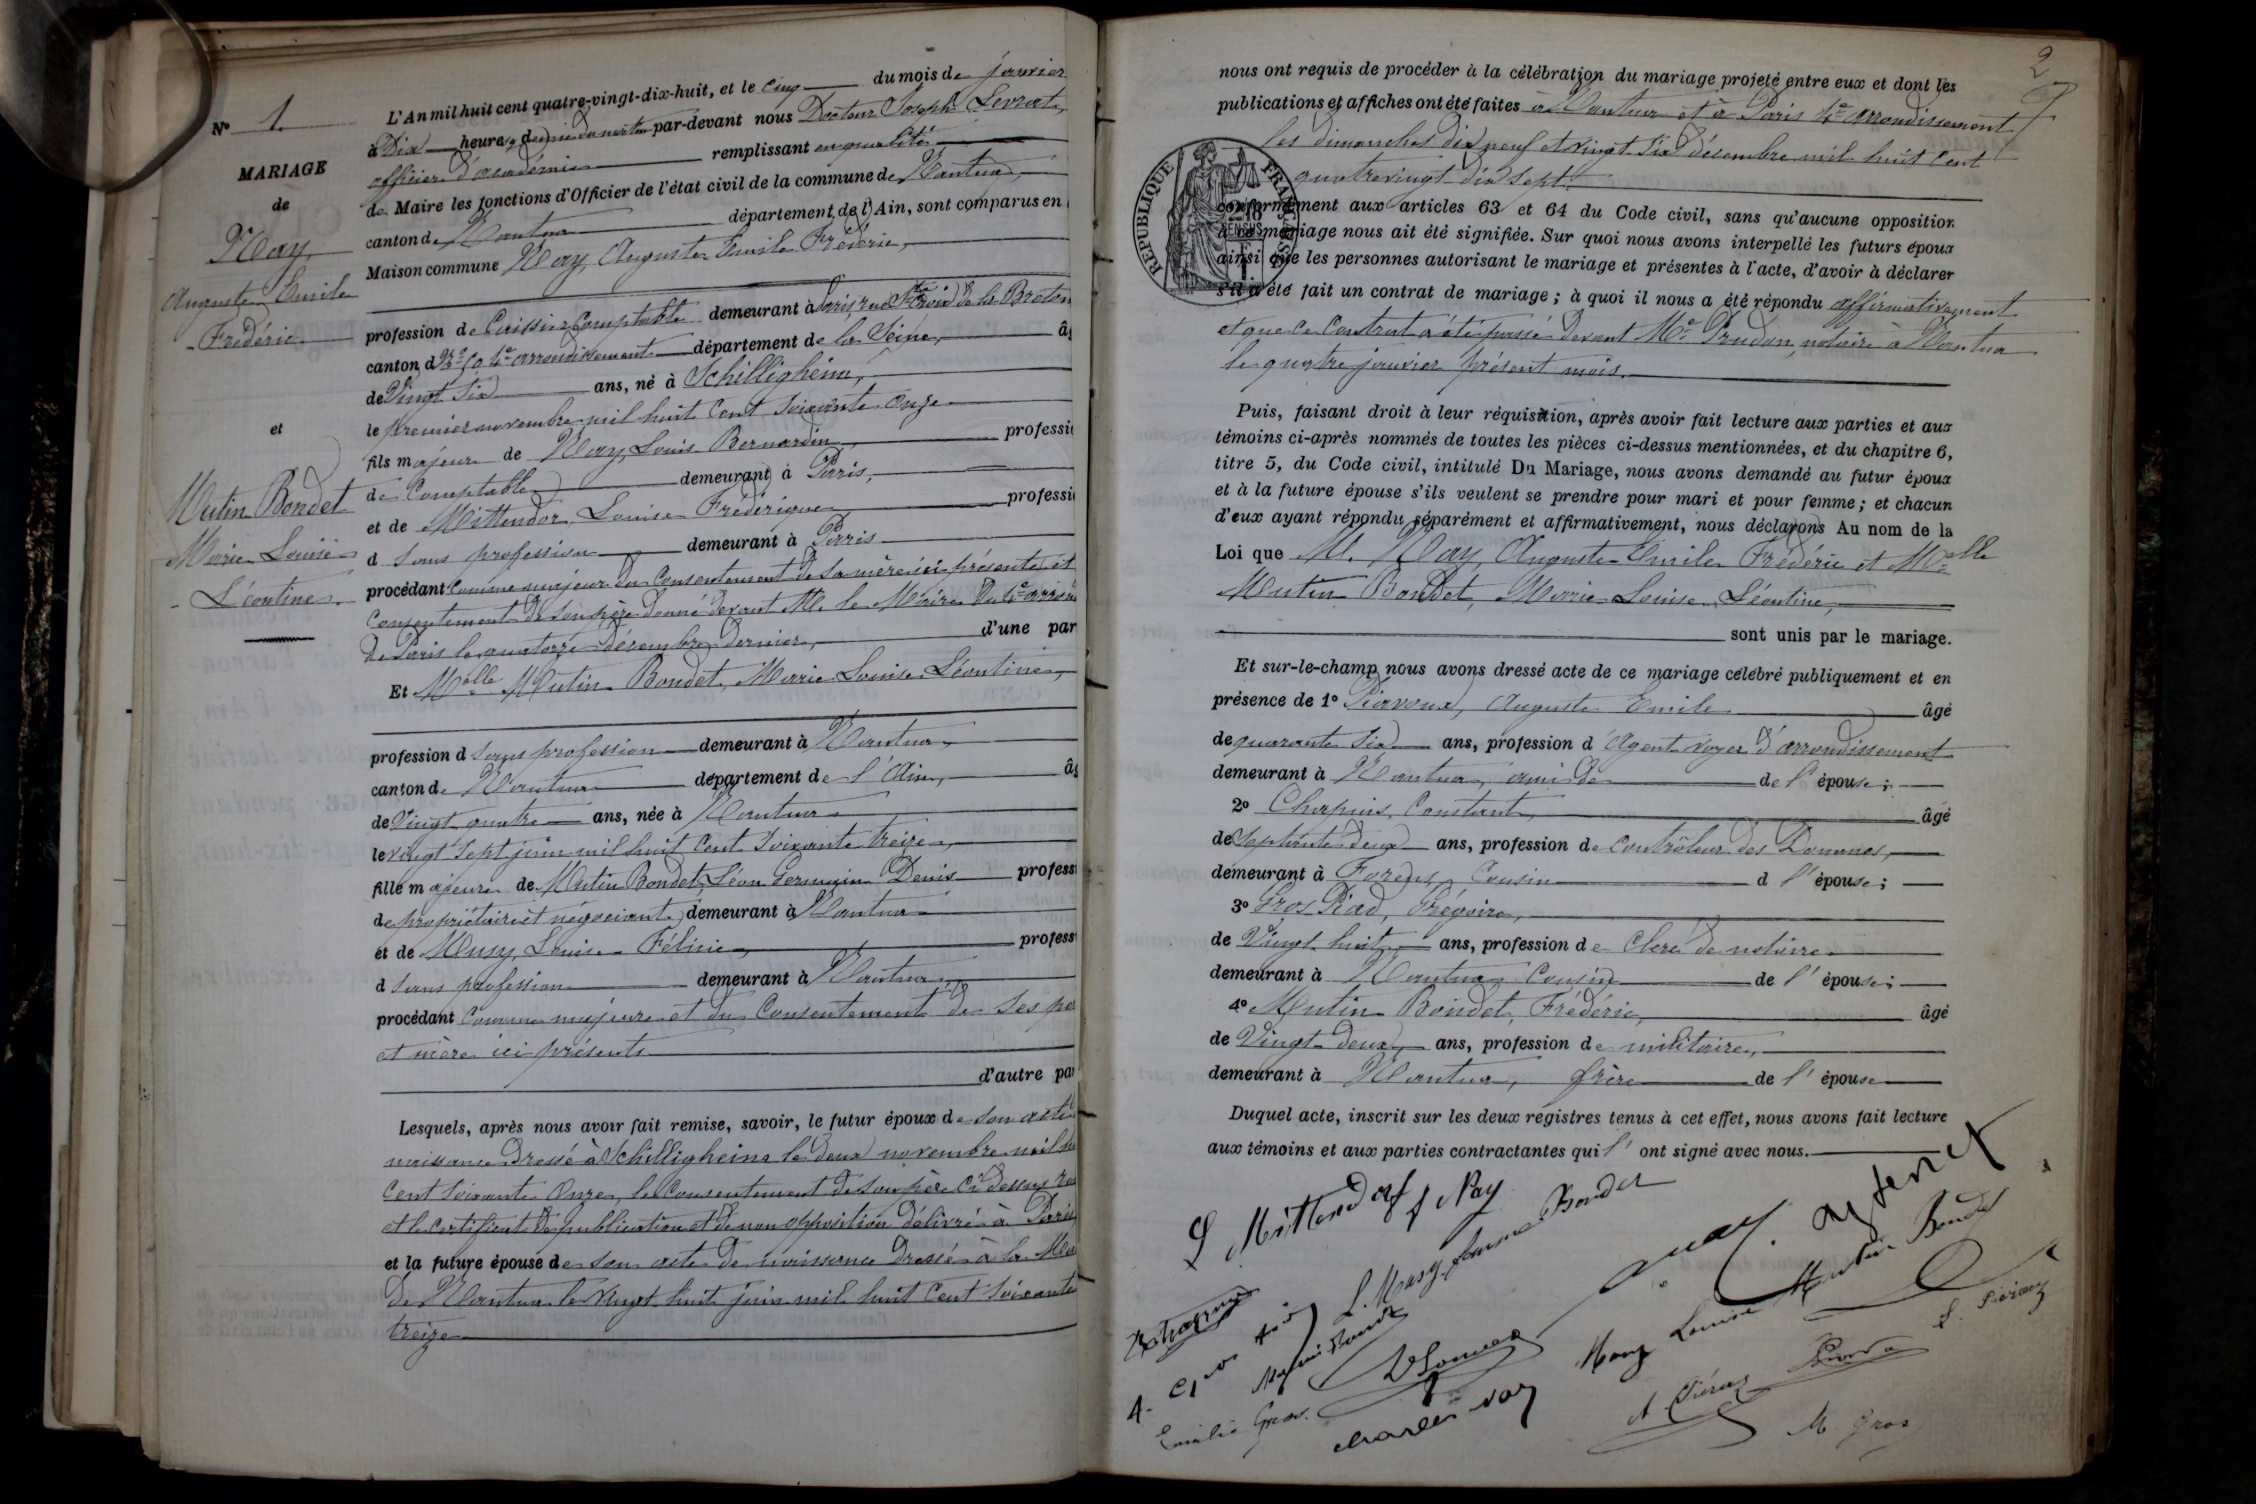 N° 1
MARIAGE
de
Nay,
Auguste Emile
Frédéric
et
Mutin Bondet
Marie Louise
Léontine.
L'An mil huit cent quatre-vingt-dix-huit, et le cinq du mois de janvier
à Dix heures & demie du matin par-devant nous Docteur Joseph Levrat,
officier d'académie remplissant en qualité
de Maire les fonctions d'Officier de l'état civil de la commune de Nantua,
canton de Nantua département de l'Ain, sont comparus en
Maison commune Nay, Auguste Emile Frédéric,
profession de Caissier Comptable demeurant à Paris, rue Ste Croix de la Breton
canton d 4e arrondissement département de la Seine, âg
de Vingt Six ans, né à Schilligheim,
le premier novembre mil huit cent soixante onze
fils majeur de Nay, Louis Bernardin professi
de Comptable demeurant à Paris,
et de Mittendor, Louise Frédérique professi
d sans profession demeurant à Paris
procédant comme majeur du consentement de sa mère ici présente et
consentement de son père donné devant M. le Maire du 4e arron
de Paris le quatorze décembre dernier, d'une par
Et Melle Mutin Bondet, Marie Louise Léontine,
profession d sans profession demeurant à Nantua
canton de Nantua département de l'Ain, âg
de Vingt quatre ans, née à Nantua
le vingt sept juin mil huit cent soixante treize,
fille majeure de Mutin Bondet, Léon Germain Denis profess
de propriétaire et négociant, demeurant à Nantua
et de Musy, Louise Félicie, profess
d sans profession demeurant à Nantua,
procédant comme majeure et du consentement de ses pè
et mère ici présents
d'autre par
Lesquels, après nous avoir fait remise, savoir, le futur époux de son acte
naissance dressé à Schilligheim le deux novembre mil hu
cent soixante onze, le consentement de son père ci dessus
et le certificat de publication et de non opposition délivré à Paris
et la future épouse de son acte de naissance dressé à la Mai
de Nantua le vingt huit juin mil huit cent soixante
treize
2
nous ont requis de procéder à la célébration du mariage projeté entre eux et dont les
publications et affiches ont été faites à Nantua et à Paris 4e arrondissement
les dimanches dix neuf et vingt six décembre mil huit cent
quatrevingt dix sept.
RÉPUBLIQUE FRANÇAISE
conformément aux articles 63 et 64 du Code civil, sans qu'aucune opposition
à ce mariage nous ait été signifiée. Sur quoi nous avons interpellé les futurs époux
ainsi que les personnes autorisant le mariage et présentes à l'acte, d'avoir à déclarer
s'il a été fait un contrat de mariage ; à quoi il nous a été répondu affirmativement
et que ce contrat a été passé devant Me Prudon, notaire à Nantua
le quatre janvier présent mois.
Puis, faisant droit à leur réquisition, après avoir fait lecture aux parties et aux
témoins ci-après nommés de toutes les pièces ci-dessus mentionnées, et du chapitre 6,
titre 5, du Code civil, intitulé Du Mariage, nous avons demandé au futur époux
et à la future épouse s'ils veulent se prendre pour mari et pour femme ; et chacun
d'eux ayant répondu séparément et affirmativement, nous déclarons Au nom de la
Loi que M. Nay, Auguste Emile Frédéric et Melle
Mutin Bondet, Marie Louise Léontine,
sont unis par le mariage.
Et sur-le-champ nous avons dressé acte de ce mariage célébré publiquement et en
présence de 1° Piavoux, Auguste Emile âgé
de quarante six ans, profession d'Agent Voyer d'arrondissement
demeurant à Nantua, ami de de l'épouse ;
2° Chapuis, Constant, âgé
de septante deux ans, profession de contrôleur des Douanes,
demeurant à Forens, Cousin d l'épouse ;
3° Gros Piad, Grégoire,
de Vingt huit ans, profession de Clerc de notaire
demeurant à Nantua, Cousin de l'épouse ;
4° Mutin Bondet, Frédéric, âgé
de Vingt deux ans, profession de militaire,
demeurant à Nantua, frère de l'épouse
Duquel acte, inscrit sur les deux registres tenus à cet effet, nous avons fait lecture
aux témoins et aux parties contractantes qui l' ont signé avec nous.
L Mittendorf f Nay
L. Musy femme Bondet
Mutin Bondet
Charles Nay
Emilie Gros.
M. Gros